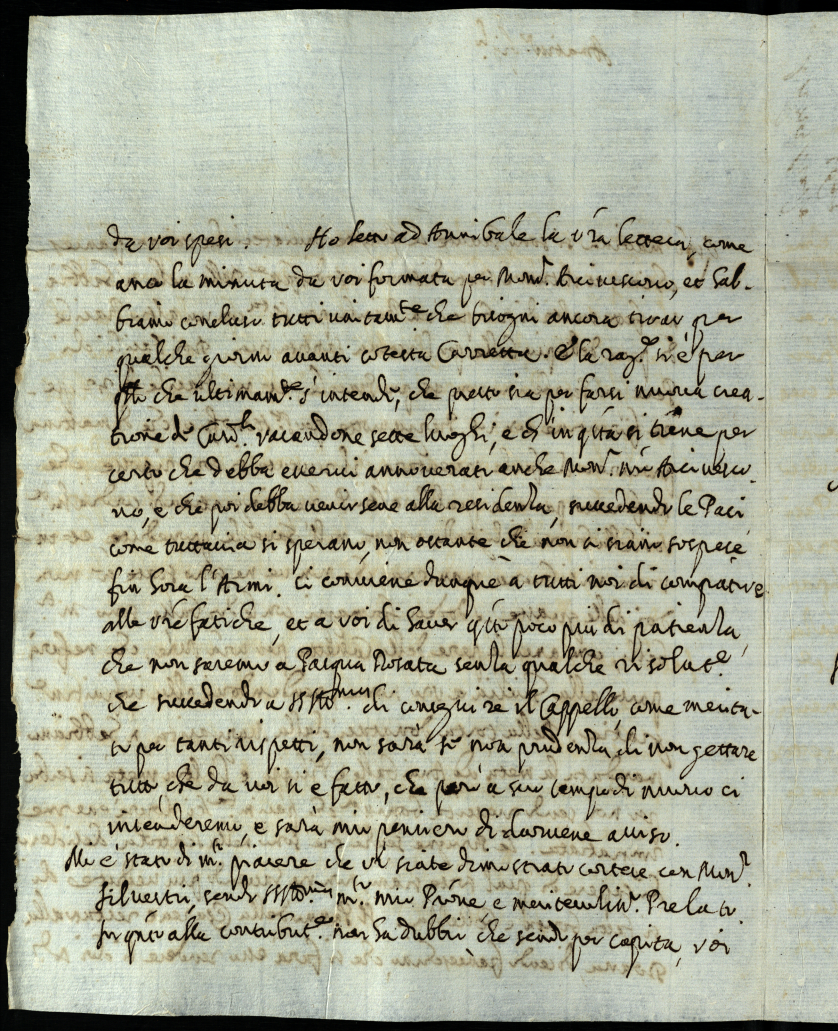 da voi spesi. Ho letto ad Annibale la vrã lettera, come
anco la minuta da voi formata per Monr. Arcivescovo, et hab-
biamo concluso tutti unitamte che bisogni ancora tirar per
qualche giorni avanti cotesta Carretta. E la rage. si è per
che ultimamte. s'intende, che presto sia per farsi nuova crea-
tione di Cardli. vacandone sette luoghi, e ch in qtà si tiene per
certo che debba esservi annoverato anche Monr. nrõ Arcivesco-
vo, e che poi debba venirsene alla residenza, succedendo le Paci
come tuttavia si sperano, non ostante che non si siano sospese
fin hora l'Armi. Ci conviene dunque à tutti noi di compatire
alle vrẽ fatiche, et a voi di haver qsto poco più di patienza,
che non saremo a Pasqua Rosata senza qualche risolute.
che succedendo a SSIllma. di conseguire il Cappello, come merita-
to per tanti rispetti, non sarà se non prudenza di non gettare
tutto che da voi si è fatto, che però a suo tempo di nuovo ci
intenderemo, e sarà mio pensiero di darvene avviso.
Mi è stato di mto. piacere che vi siate dimostrato cortese con Monr.
Silvestri, sendo SSIllma. mto. mio Prõne e meritevoliso. Prelato.
In qsto alla contribute. non ha dubbio che sendo per capita, voi